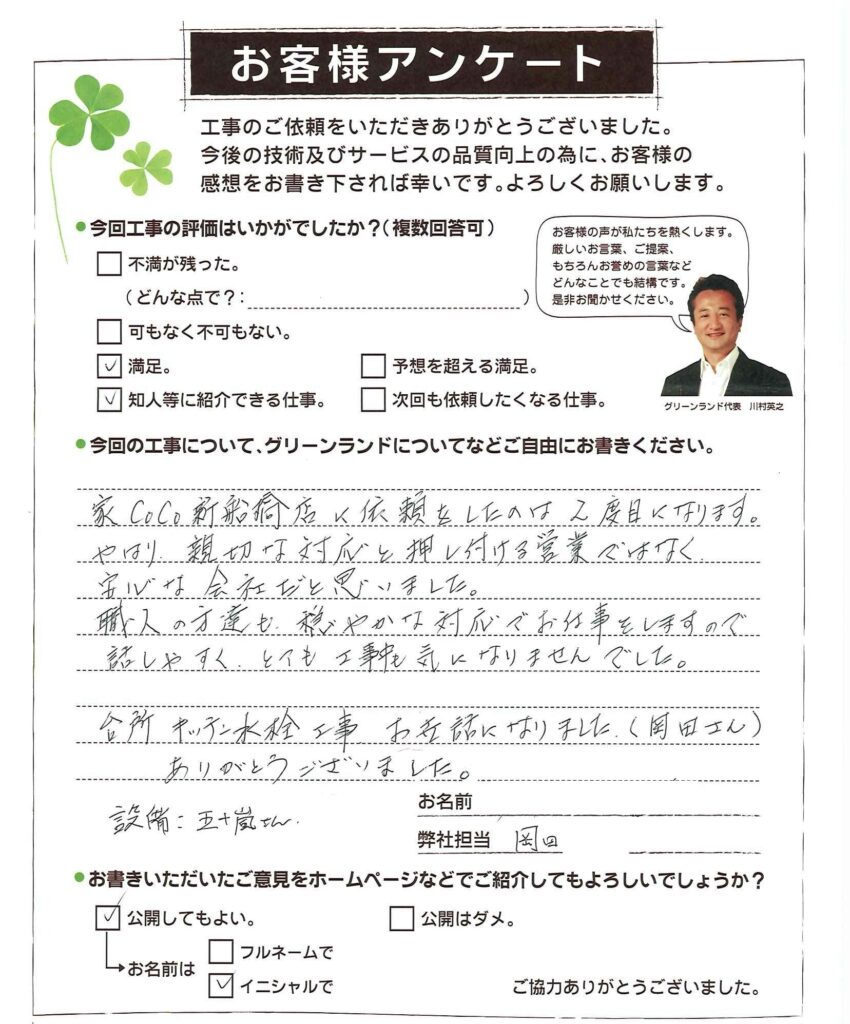 お客様アンケート
工事のご依頼をいただきありがとうございました。
今後の技術及びサービスの品質向上の為に、お客様の
感想をお書き下されば幸いです。よろしくお願いします。
●今回工事の評価はいかがでしたか?(複数回答可)
お客様の声が私たちを熱くします。
厳しいお言葉、ご提案、
もちろんお誉めの言葉など
どんなことでも結構です。
是非お聞かせください。
グリーンランド代表 川村英之
不満が残った。
(どんな点で?: )
可もなく不可もない。
満足。 予想を超える満足。
知人等に紹介できる仕事。 次回も依頼したくなる仕事。
●今回の工事について、グリーンランドについてなどご自由にお書きください。
家CoCo新船橋店に依頼をしたのは2度目になります。
やはり、親切な対応と押し付ける営業ではなく、
安心な会社だと思いました。
職人の方達も、穏やかな対応でお仕事をしますので
話しやすく、とても工事中も気になりませんでした。
台所 キッチン水栓工事 お世話になりました。(岡田さん)
ありがとうございました。
設備:五十嵐さん。
お名前
弊社担当 岡田
●お書きいただいたご意見をホームページなどでご紹介してもよろしいでしょうか?
公開してもよい。 公開はダメ。
お名前は
フルネームで
イニシャルで
ご協力ありがとうございました。